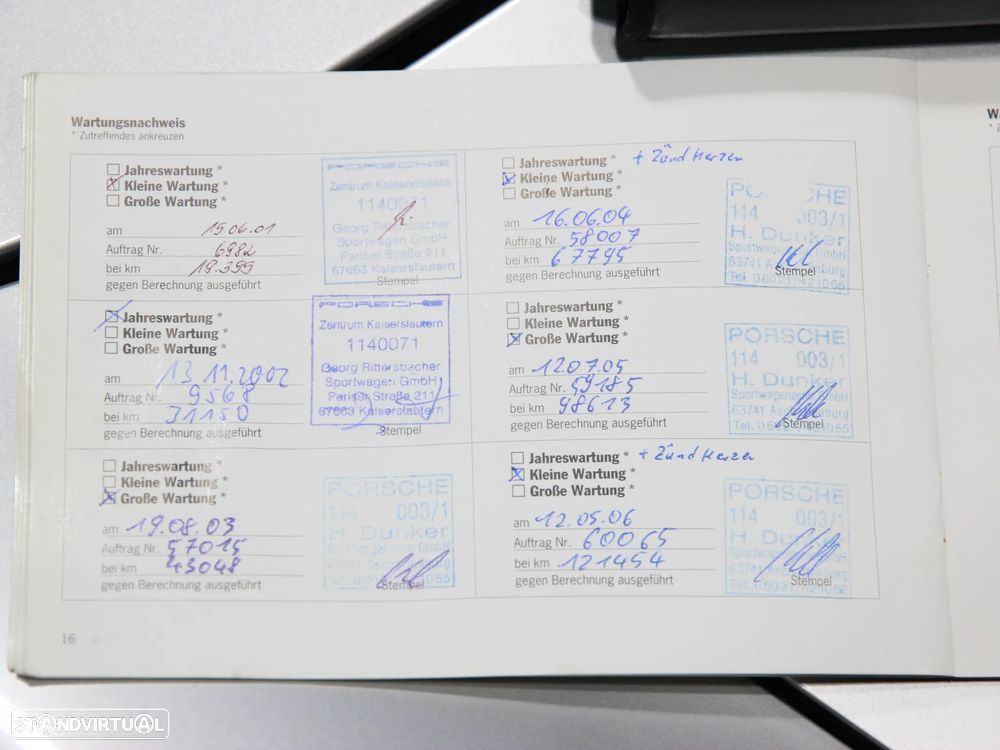 Wartungsnachweis
* Zutreffendes ankreuzen
Jahreswartung *
Kleine Wartung *
Große Wartung *
am 15.06.01
Auftrag Nr. 6982
bei km 19.395
gegen Berechnung ausgeführt
PORSCHE
Zentrum Kaiserslautern
1140071
Georg Rittersbacher
Sportwagen GmbH
Pariser Straße 211
67663 Kaiserslautern
Stempel
Jahreswartung *
Kleine Wartung *
Große Wartung *
am 13 11.2002
Auftrag Nr. 9568
bei km 31150
gegen Berechnung ausgeführt
PORSCHE
Zentrum Kaiserslautern
1140071
Georg Rittersbacher
Sportwagen GmbH
Pariser Straße 211
67663 Kaiserslautern
Stempel
Jahreswartung *
Kleine Wartung *
Große Wartung *
am 19.08.03
Auftrag Nr. 57015
bei km 43048
gegen Berechnung ausgeführt
PORSCHE
114 003/1
H. Dunker
Stempel
Jahreswartung * + Zündkerzen
Kleine Wartung *
Große Wartung *
am 16.06.04
Auftrag Nr. 58007
bei km 67795
gegen Berechnung ausgeführt
114 003/1
H. Dunker
63741
Tel. 06021/421065
Stempel
Jahreswartung *
Kleine Wartung *
Große Wartung *
am 120705
Auftrag Nr. 59185
bei km 98613
gegen Berechnung ausgeführt
PORSCHE
114 003/1
H. Dunker
63741
Stempel
Jahreswartung * + Zündkerzen
Kleine Wartung *
Große Wartung *
am 12.05.06
Auftrag Nr. 60065
bei km 121454
gegen Berechnung ausgeführt
PORSCHE
114 003/1
63741
Stempel
16
STANDVIRTUAL